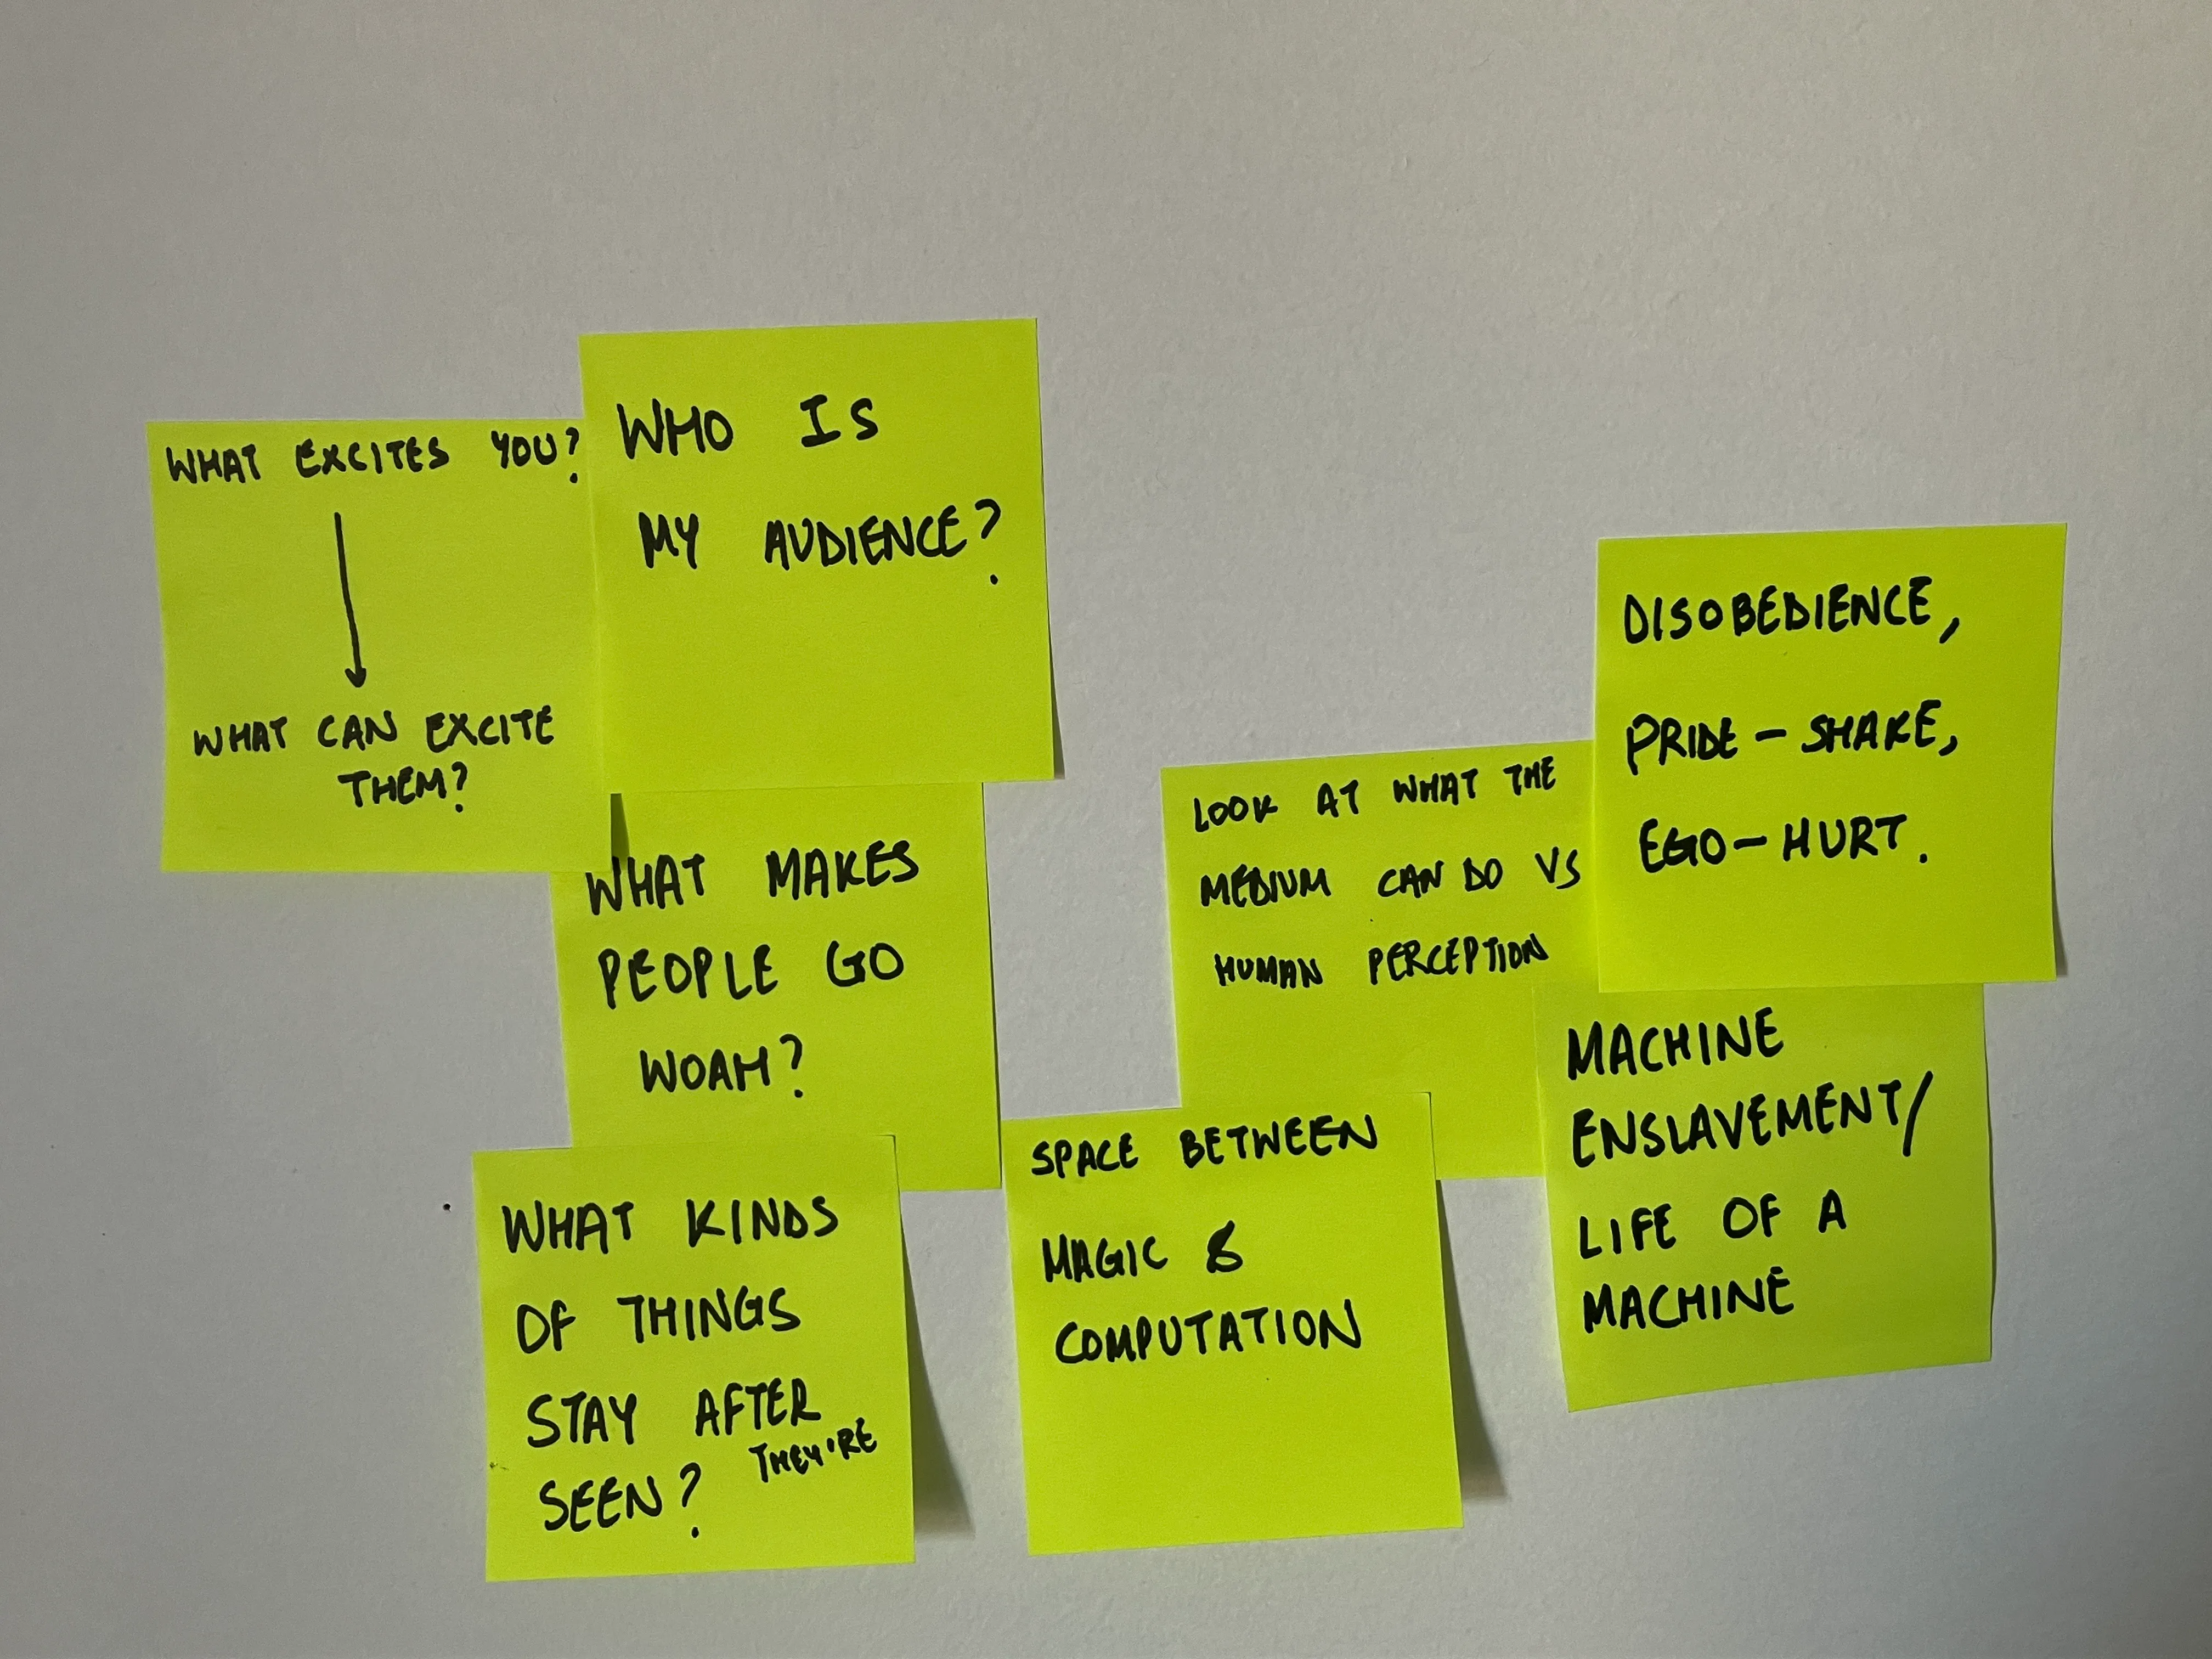 WHAT EXCITES YOU?
WHAT CAN EXCITE
THEM?
WHO IS
MY AUDIENCE?
WHAT MAKES
PEOPLE GO
WOAH?
WHAT KINDS
OF THINGS
STAY AFTER
THEY'RE
SEEN?
LOOK AT WHAT THE
MEDIUM CAN DO VS
HUMAN PERCEPTION
SPACE BETWEEN
MAGIC &
COMPUTATION
DISOBEDIENCE,
PRIDE - SHAKE,
EGO - HURT.
MACHINE
ENSLAVEMENT/
LIFE OF A
MACHINE